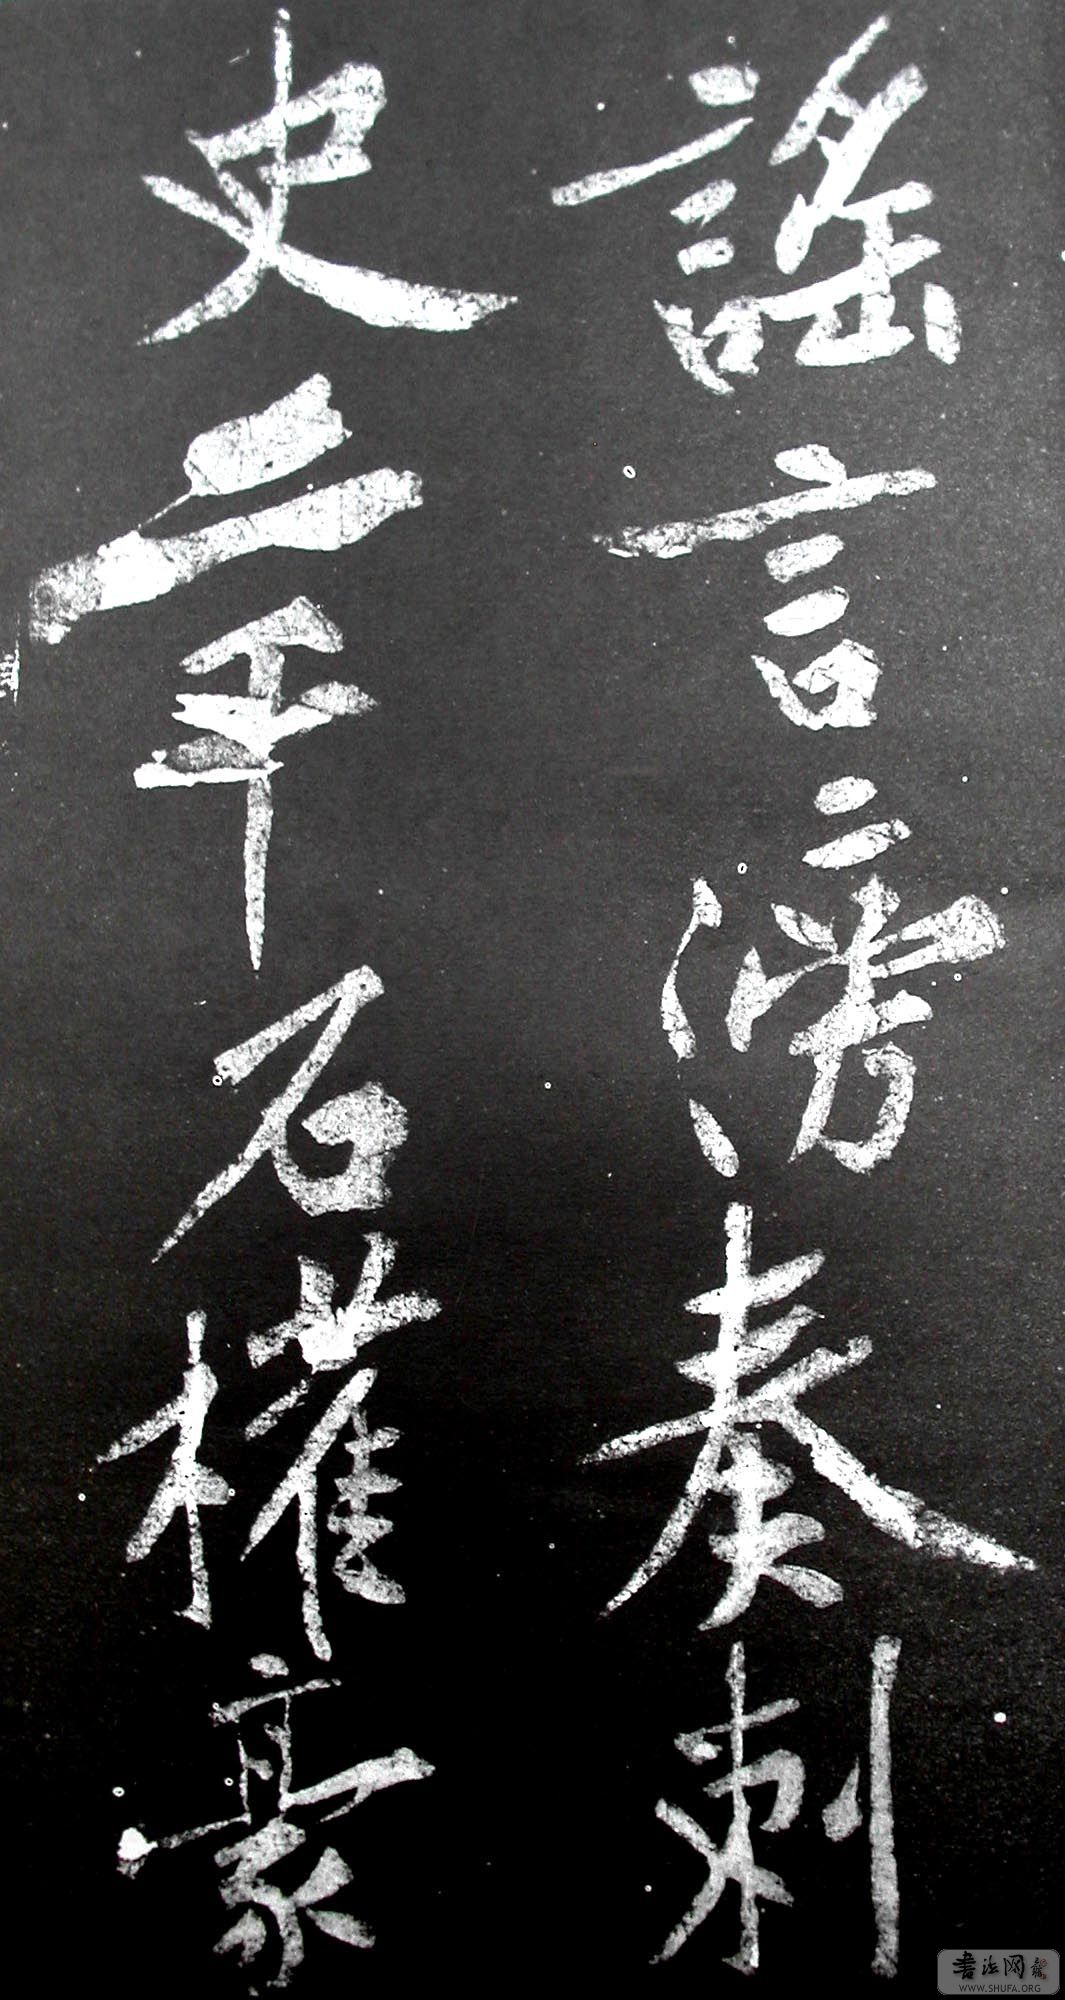 謠言滂奏刺
史二千石權豪
書法网
WWW.SHUFA.ORG